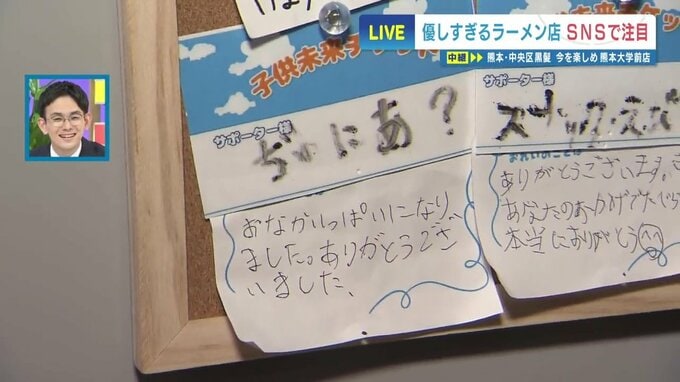 LIVE 優しすぎるラーメン店 SNSで注目
中継 熊本・中央区黒髪 今を楽しめ 熊本大学前店
子供未来チケット
サポーター様
ぢゃにあ?
おなかいっぱいになり
ました。ありがとうござ
いました、
サポーター様
お礼のことば
ありがとうございます。
あなたのおかげで
本当にありがとう